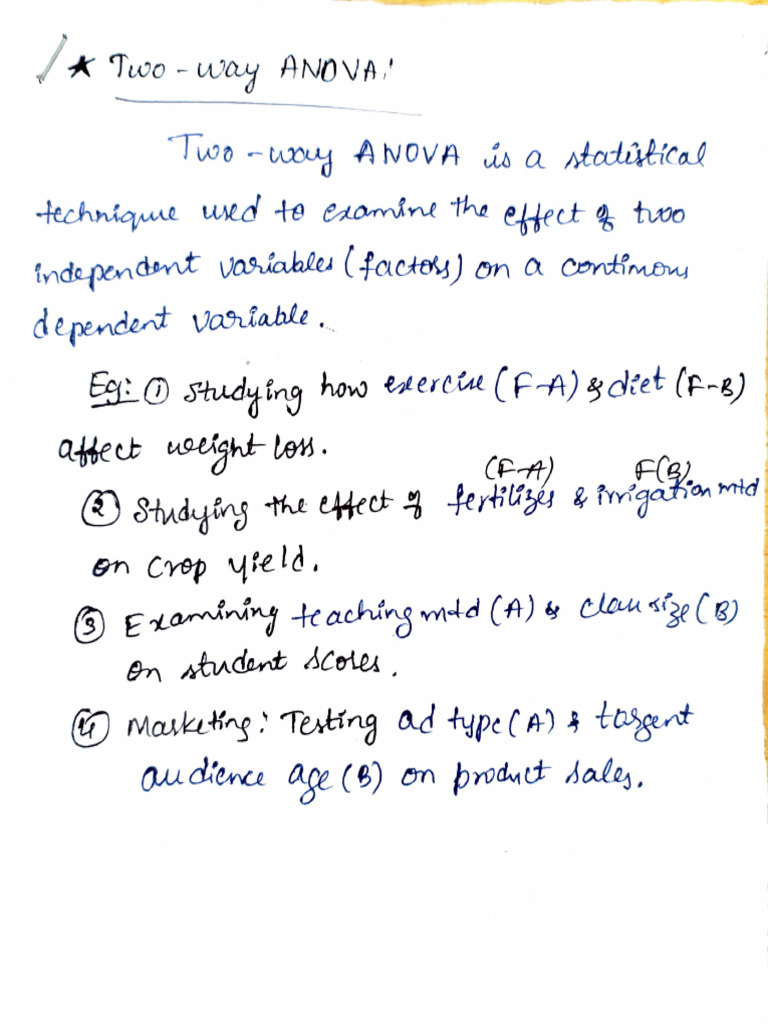 * Two-way ANOVA:
Two-way ANOVA is a statistical
technique used to examine the effect of two
independent variables (factors) on a continous
dependent variable.
Eg: ① Studying how exercise (F-A) & diet (F-B)
affect weight loss.
(F-A) F(B)
② Studying the effect of fertilizes & irrigation mtd
on crop yield.
③ Examining teaching mtd (A) & class size (B)
on student scores.
④ Marketing: Testing ad type (A) & targent
audience age (B) on product sales.